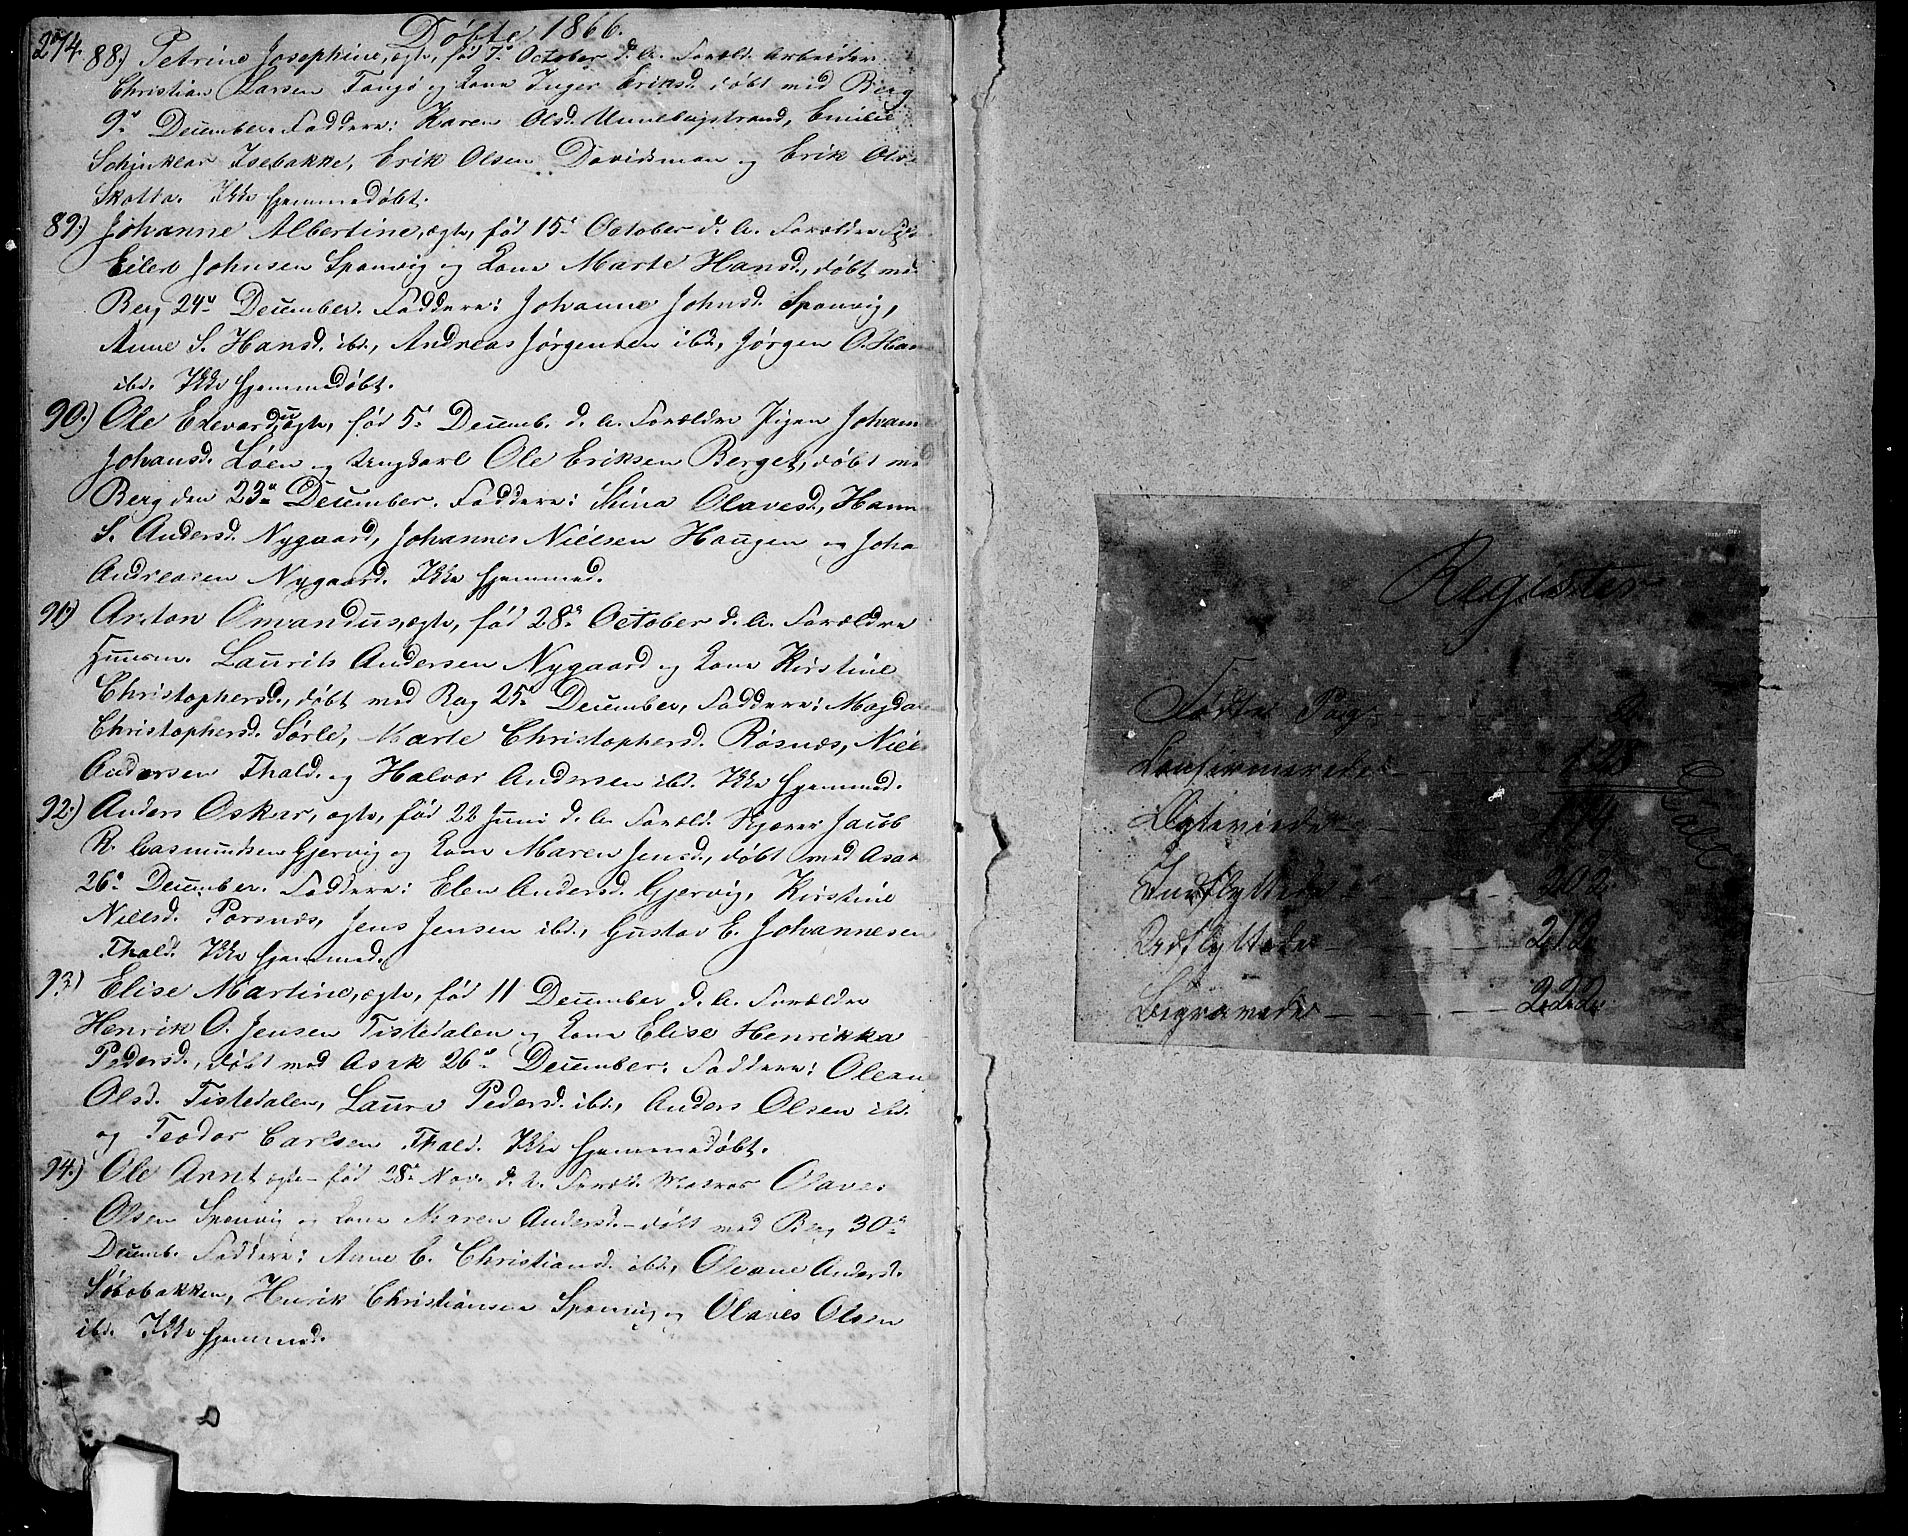 274.
Døbte 1866.
88.) Petrine Josephine, ægte, fød 7de October d. A. Foræld. Arbeider
Christian Larsen Tangø og Kone Inger Eriksd. døbt med Berg
9de December. Faddere: Karen Olsd. Unnebergstrand, Emilie
Isebakke, Erik Olsen Davidsmon og Erik Ols-
Ikke hjemmedøbt.
89.) Johanne Albertine, ægte, fød 15de October d. A. Forældre
Eilert Johnsen Sponvig og Kone Marte Hansd., døbt med
Berg 24de December. Faddere: Johanne Johnsd. Sponvig,
Anne S. Hansd. ibd., Andreas Jørgensen ibd., Jørgen O. Han
ibd. Ikke hjemmedøbt.
90.) Ole Edevard, uægte, fød 5te Decemb. d. A. Forældre Pigen Johann
Johansd. Løen og Ungkarl Ole Eriksen Berget, døbt med
Berg den 23de December. Faddere: Stina Olavesd., Hann
S. Andersd. Nygaard, Johannes Nielsen Haugen og Joha
Andreasen Nygaard. Ikke hjemmed.
91.) Anton Omandus, ægte, fød 28de October d. A. Forældre
Huusm. Laurits Andersen Nygaard og Kone Kirstine
Christophersd., døbt med Rag 25de December, Faddere: Magda
Christophersd. Sørle, Marte Christophersd. Røsnæs, Niels
Andersen Fhald. og Halvor Andersen ibd. Ikke hjemmed.
92.) Anders Oskar, ægte, fød 22 Juni d. A. Foræld. Skjærer Jacob
R. Gjervig og Kone Maren Jensd., døbt med Asak
26de December. Faddere: Elen Andersd. Gjervig, Kirstine
Nielsd. Porsnæs, Jens Jensen ibd., Gustav E. Johannesen
Fhald. Ikke hjemmed.
93.) Elise Martine, ægte, fød 11 December d. A. Forældre
Henrik O. Jensen Tistedalen og Kone Elise Henrikka
Pedersd., døbt med Asak 26de December. Faddere: Olean
Olsd. Tistedalen, Laura Pedersd. ibd., Anders Olsen ibd.
og Teodor Carlsen Fhald. Ikke hjemmedøbt.
94.) Ole Arnt ægte – fød 28de Nov. d. A. Foræld. Matros Olaves
Olsen Sponvig og Kone Maren Andersd. – døbt med Berg 30de
Decemb. Faddere: Anne C. Christiansd. ibd., Oleane Andersd.
Henrik Christiansen Sponvig og Olaves Olsen
ibd. Ikke hjemmed.
Register
Fødte Pag.
Confirmerede 128
Ægteviede 174
Indflyttede 202
Udflyttede 212
Begravede 222